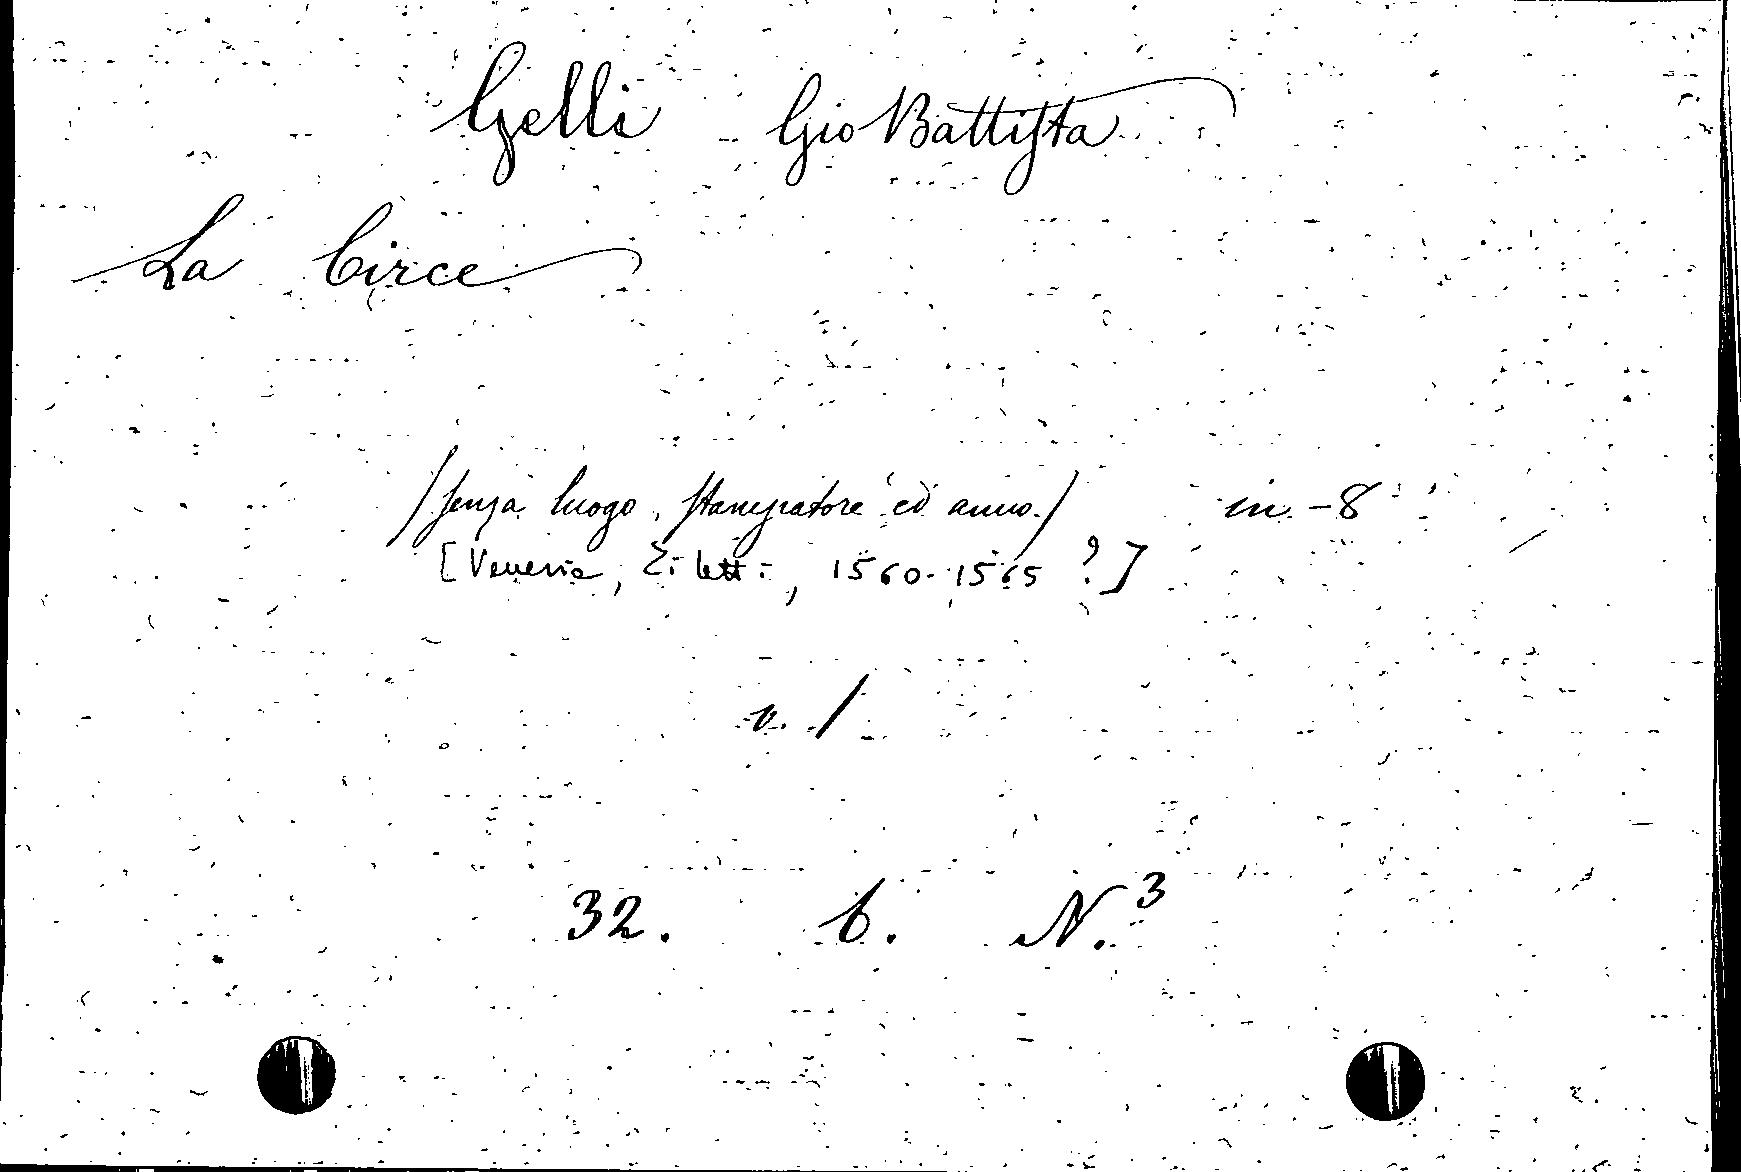 Gelli Gio Battista
La Circe
/senza luogo, stampatore ed anno./ in-8
[Venezia, Ziletti, 1560-1565 ?]
v. 1
32. b. N.3